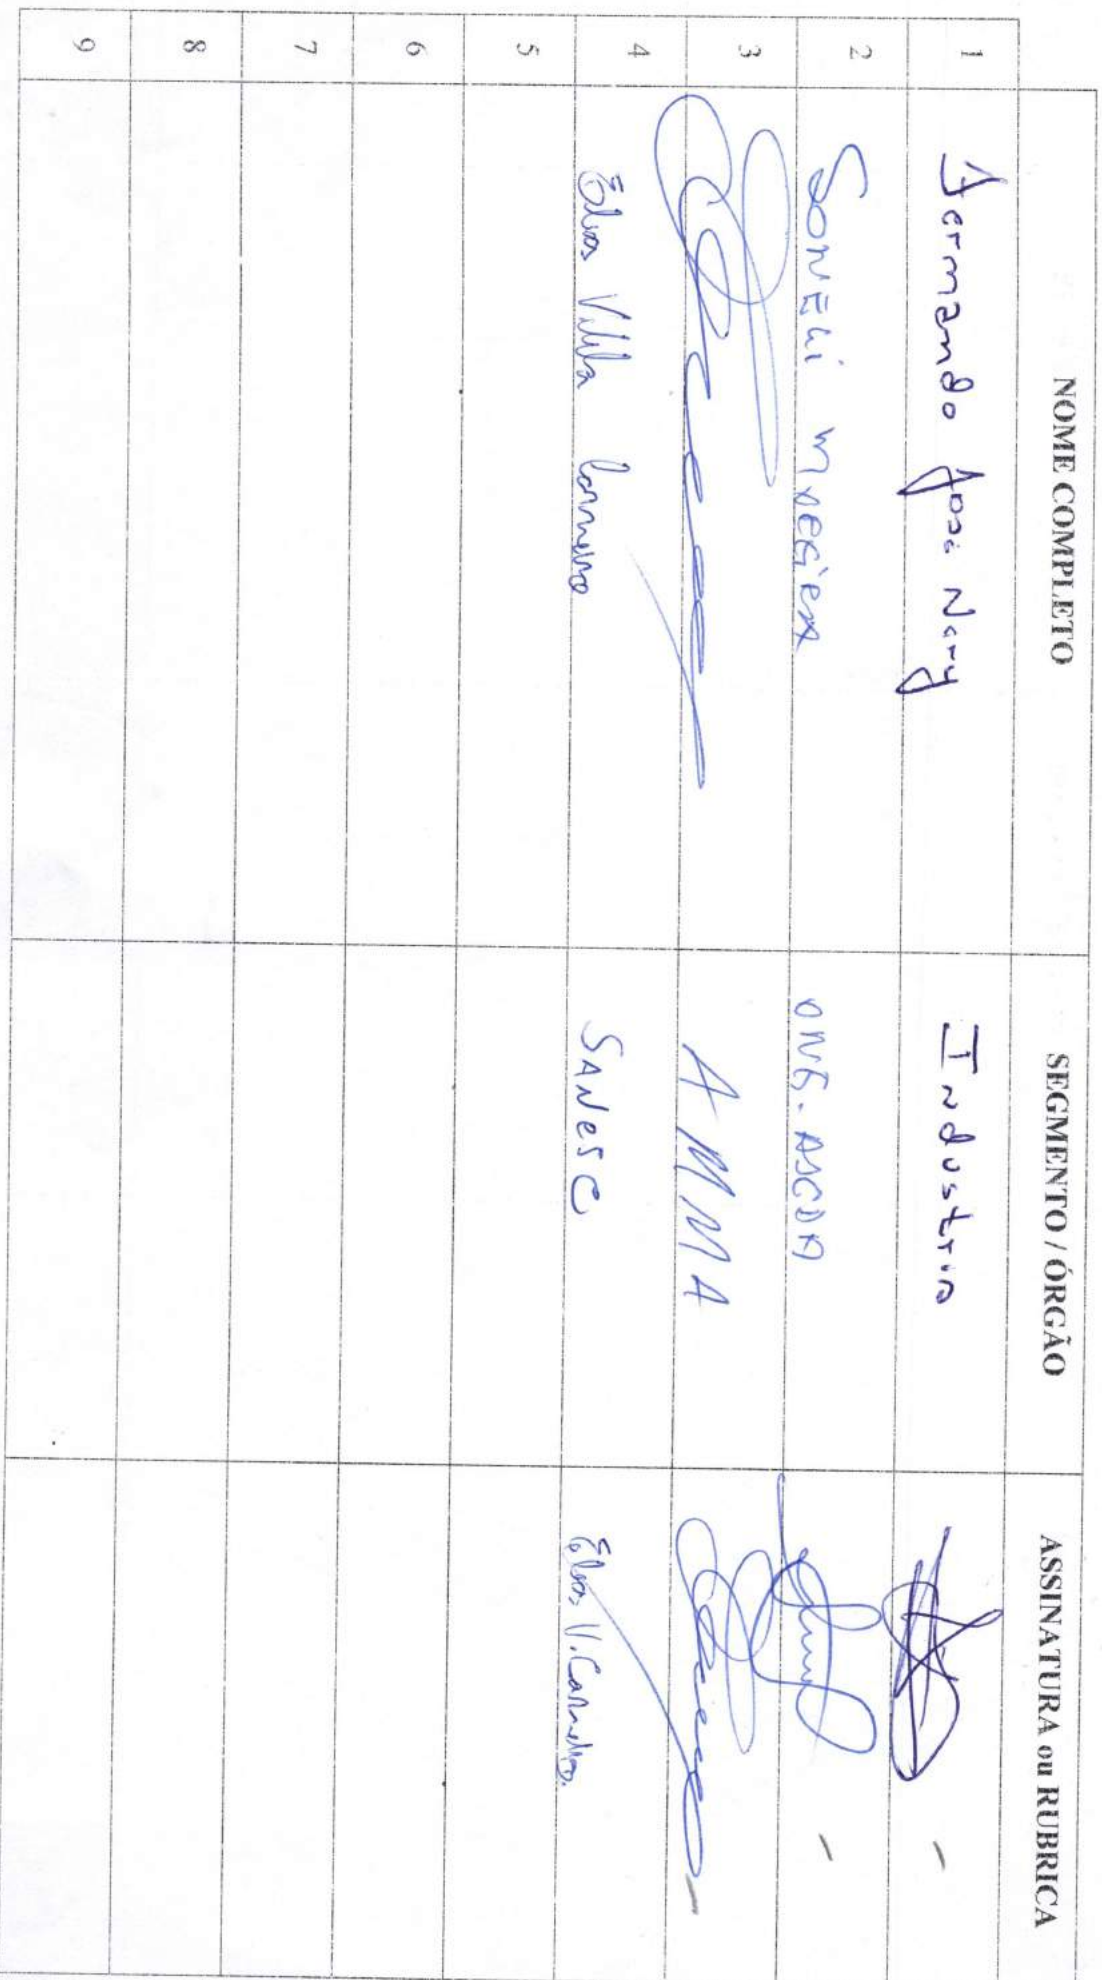 NOME COMPLETO SEGMENTO / ÓRGÃO ASSINATURA ou RUBRICA
1 Fernando José Nery Industria
2 SONELI ONG. ASCDM
3 AMMA
4 Elvas Villela Carneiro SANESC Elvas V. Carneiro.
5
6
7
8
9